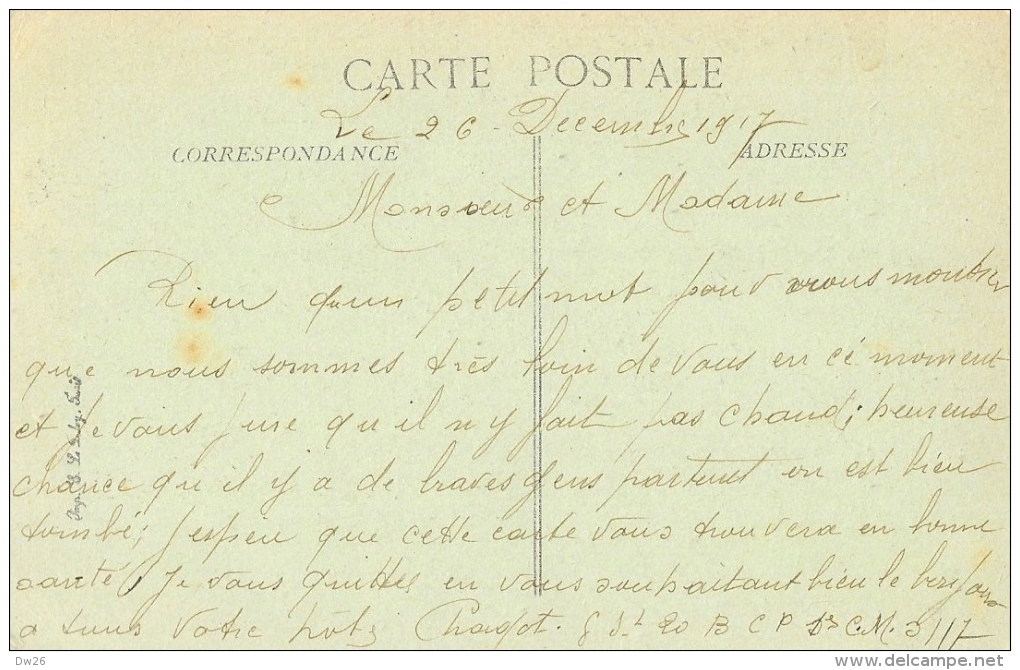 CARTE POSTALE
Le 26 Decembre 1917
CORRESPONDANCE
ADRESSE
Monsieur et Madame
Rien qu'un petit mot pour vous montrer
que nous sommes très loin de vous en cé moment
et je vous jure qu'il n'y fait pas chaud; heureuse
chance qu'il y a de braves gens partout on est bien
tombé; j'espère que cette carte vous trouvera en bonne
santé, Je vous quitte en vous souhaitant bien le bonjour
a tous Votre hôte Chagot. 20 B C P C.M. 3/17
Dw26
delcampe.net